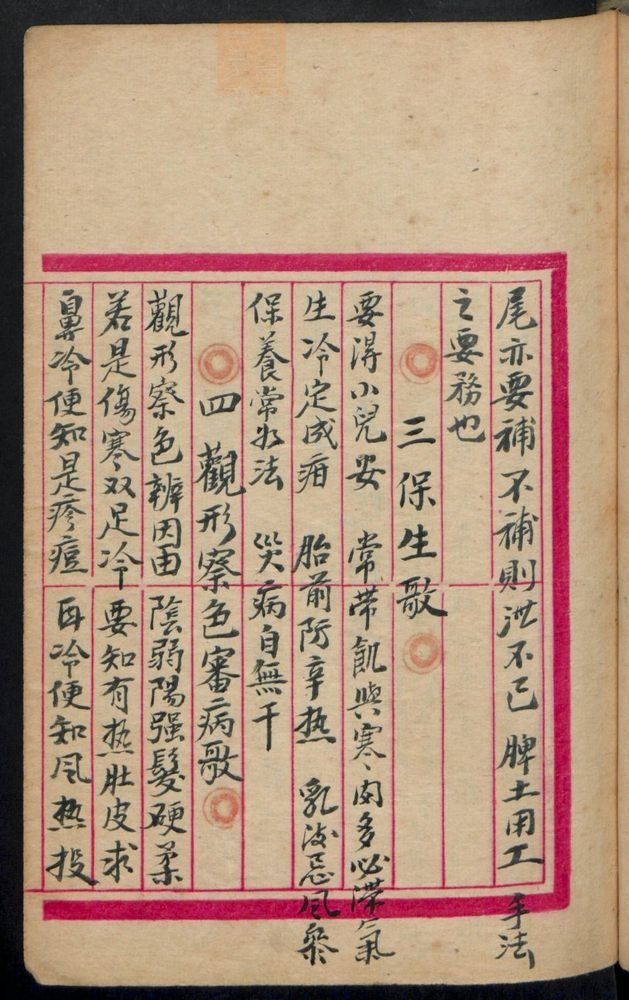 尾亦要補不補則泄不已 脾土用工 手法
之要務也
三保生歌
要得小兒安 常带飢與寒 肉多必滞氣
生冷定成疳 胎前防辛热 乳後忌風參
保養常如法 災病自無干
四觀形察色審病歌
觀形察色辨因由 陰弱陽强髮硬柔
若是傷寒双足冷 要知有热肚皮求
鼻冷便知是疹痘 耳冷便知风热投